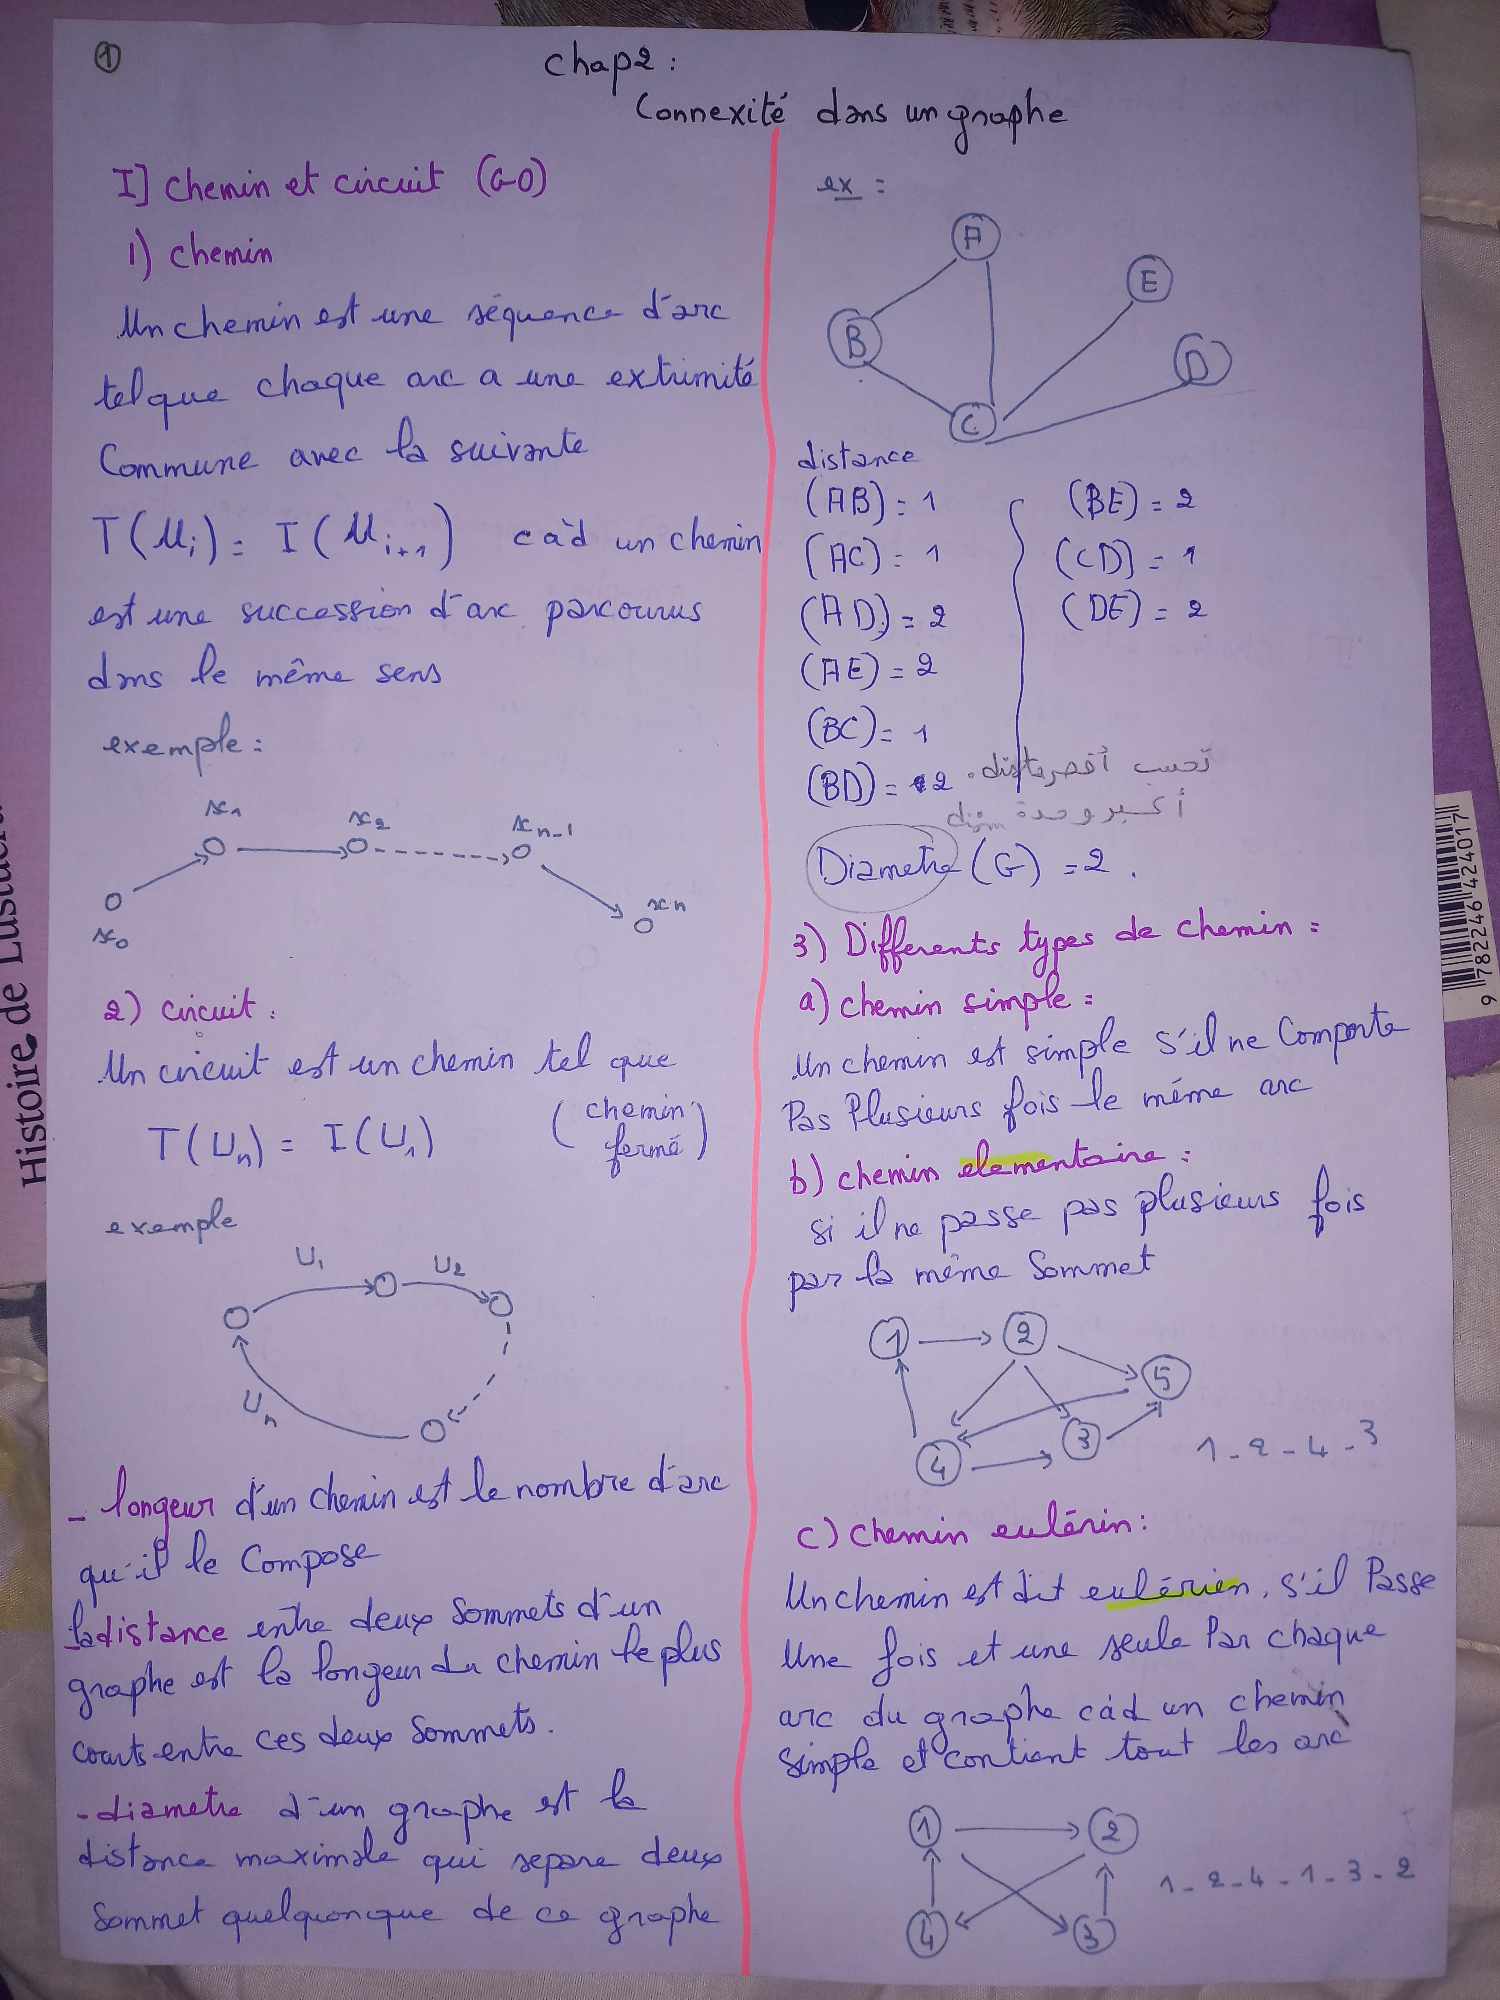 1
Chap2 :
Connexité dans un graphe
I] Chemin et circuit (G-O)
1) Chemin
Un chemin est une séquence d'arc
tel que chaque arc a une extrimité
Commune avec la suivante
T(Ui) = I(Ui+1) càd un chemin
est une succession d'arc parcourus
dans le même sens
exemple :
x1 x2 xn-1
x0 xn
2) Circuit :
Un circuit est un chemin tel que
T(Un) = I(U1) (chemin
fermé)
exemple
U1 U2
Un
- longeur d'un chemin est le nombre d'arc
qu'il le Compose
la distance entre deux Sommets d'un
graphe est la longeur du chemin le plus
courts entre ces deux Sommets.
- diametre d'un graphe est la
distance maximale qui separe deux
Sommet quelquonque de ce graphe
ex :
A
E
B
D
C
distance
(AB) = 1 (BE) = 2
(AC) = 1 (CD) = 1
(AD) = 2 (DE) = 2
(AE) = 2
(BC) = 1
(BD) = 2
نحسب أقصر
أكبر وحدة
Diametre (G) = 2.
3) Differents types de chemin :
a) chemin simple :
Un chemin est simple s'il ne Comporte
Pas Plusieurs fois le même arc
b) chemin elementaire :
si il ne passe pas plusieurs fois
par la même Sommet
1 2
5
4 3
1-2-4-3
c) Chemin eulérin :
Un chemin est dit eulérien, s'il Passe
Une fois et une seule Par chaque
arc du graphe càd un chemin
simple et contient tout les arc
1 2
1-2-4-1-3-2
4 3
Histoire de
9 782246 424017